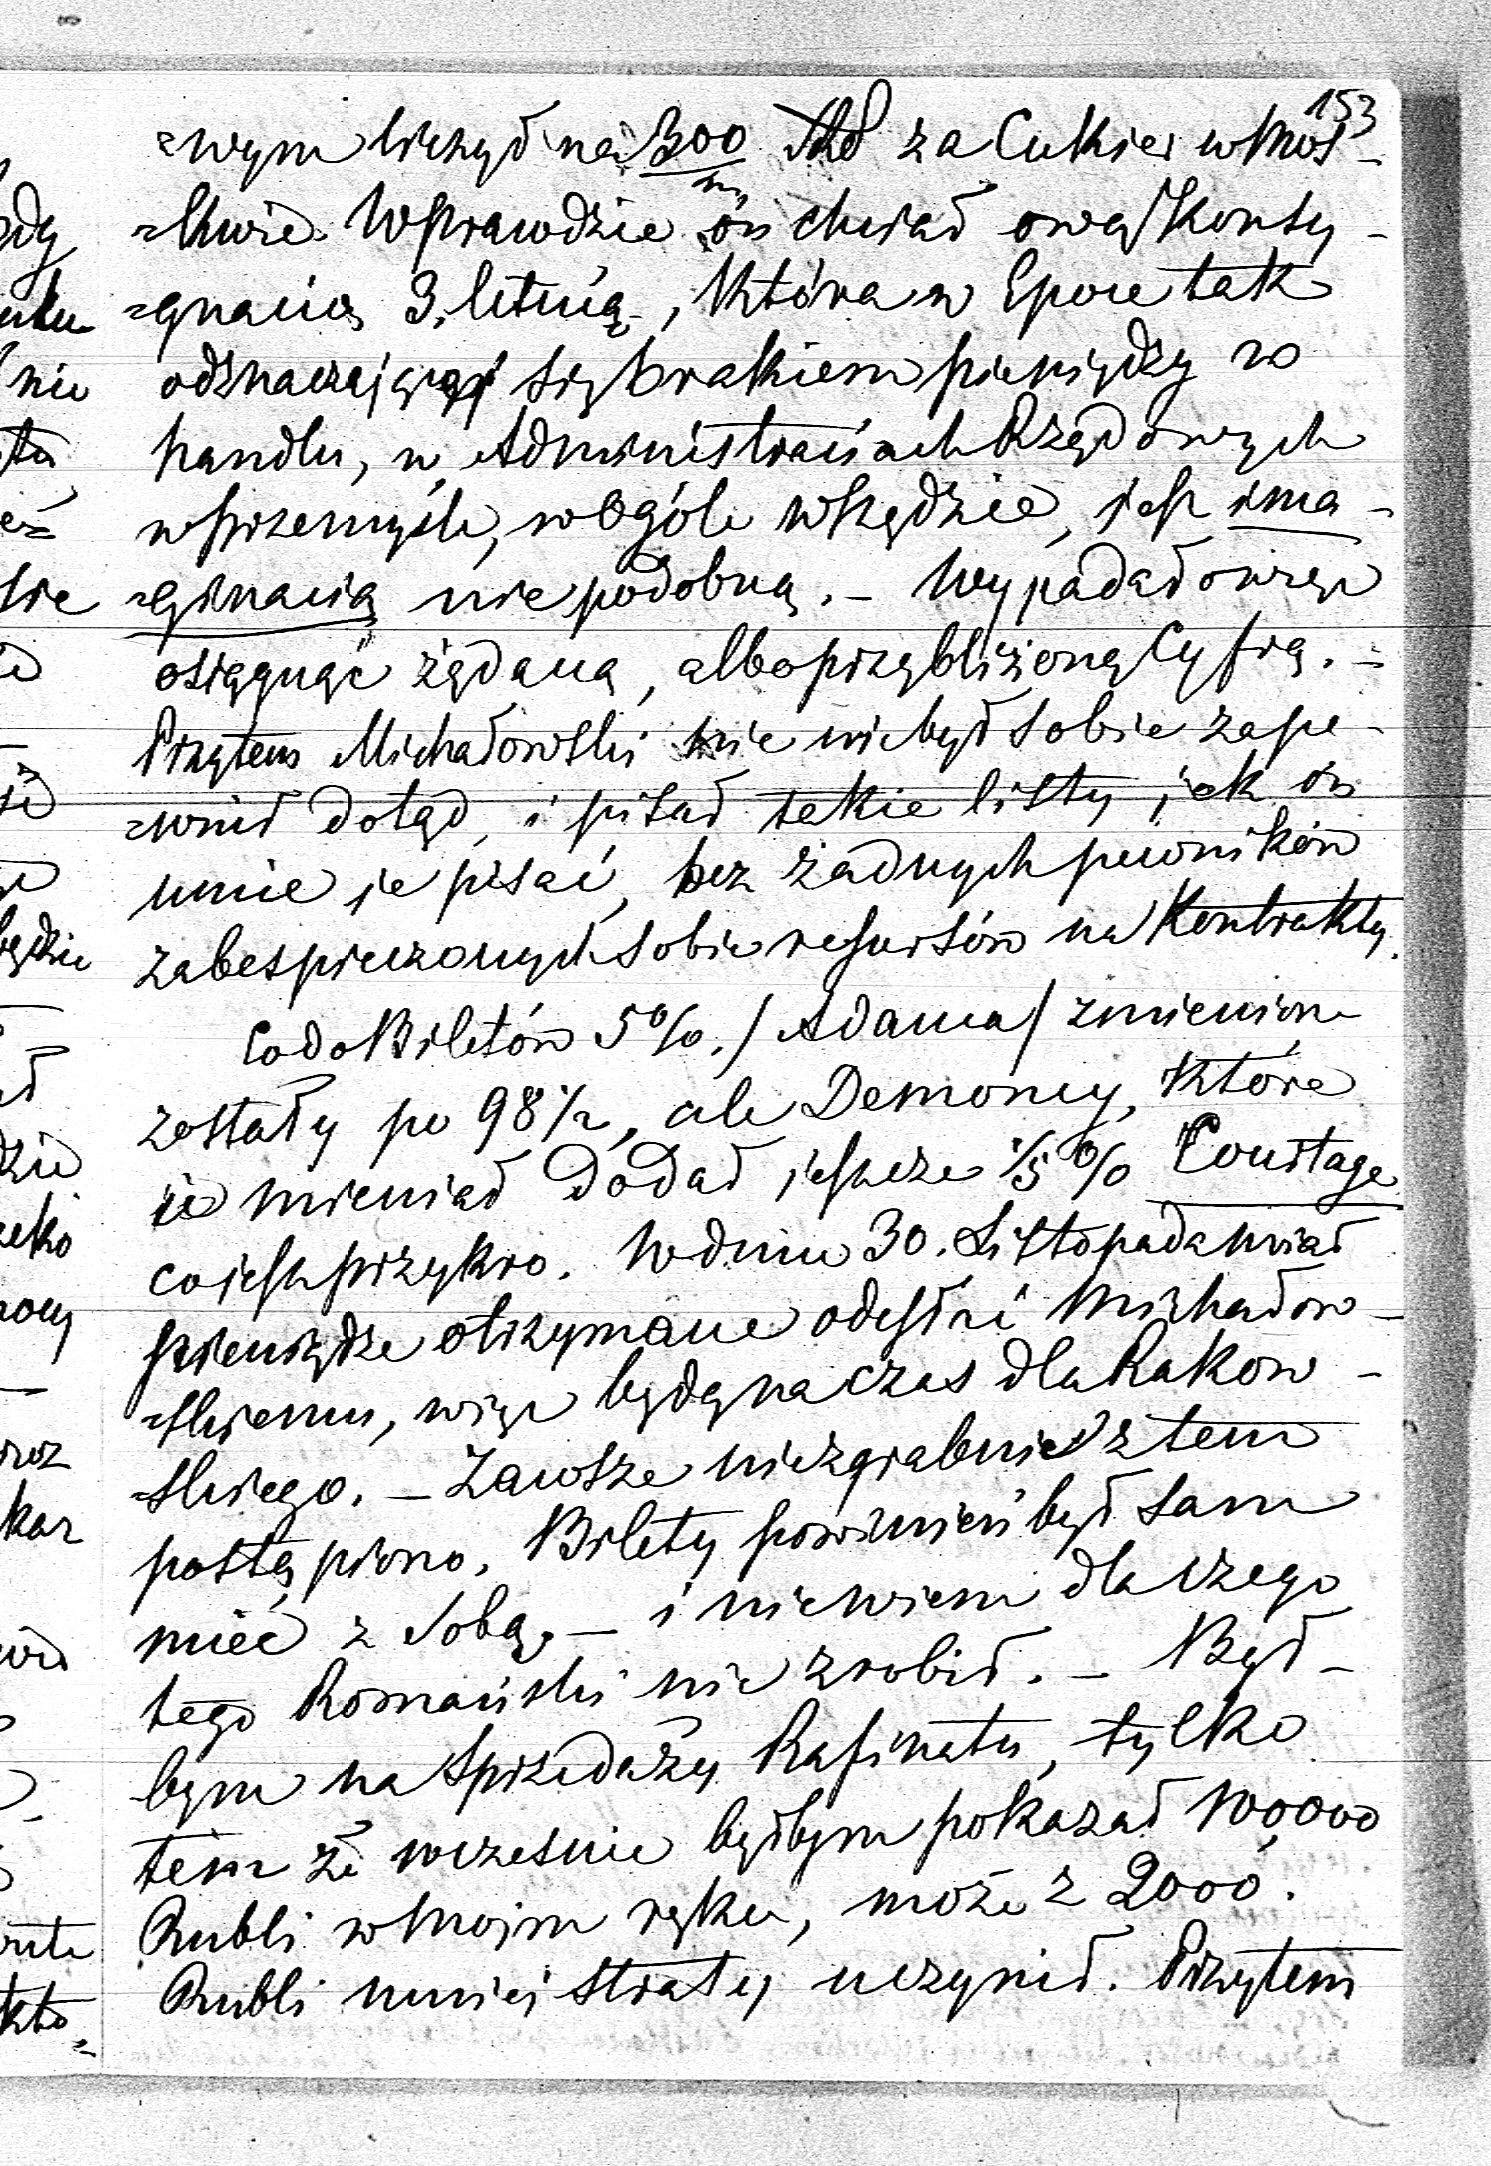 153
=wym liczył na 300/m za Cukier w Mos-
=kwie. Wprawdzie on chciał ową Konsy-
=gnacią 3. letnią, która w Epoce tak
odznaczającej się brakiem pieniędzy w
handlu, w Administraciach Rządowych
w przemyśle, w ogóle wszędzie, jest ima-
=ginacią niepodobną. - Wypadało więc
osiągnąć żądaną, albo przybliżoną Cyfrą. -
Przytem Michałowski nic niebył sobie zape-
=wnił dotąd, i pisał takie listy jak on
umie je pisać, bez żadnych pewników
zabespieczonych sobie resursów na Kontrakty.
Co do Biletów 5%. / Adama / zmienione
zostały po 98 1/2, ale Demoncy, które
je mieniał dodał jeszcze 1/5 % Courtage
co jest przykro. W dniu 30. Listopada miał
pieniądze otrzymane odesłać Michałow-
=skiemu, więc będą na czas dla Rakow-
=skiego. - Zawsze niezgrabnie z tem
postąpiono. Bilety powinien był sam
mieć z sobą, - i niewiem dla czego
tego Romański nie zrobił. - Był-
bym na sprzedaży Rafinatu, tylko
tem że wcześnie byłbym pokazał 10,000
Rubli w moim ręku, może z 2000.
Rubli mniej straty uczynił. Przytem